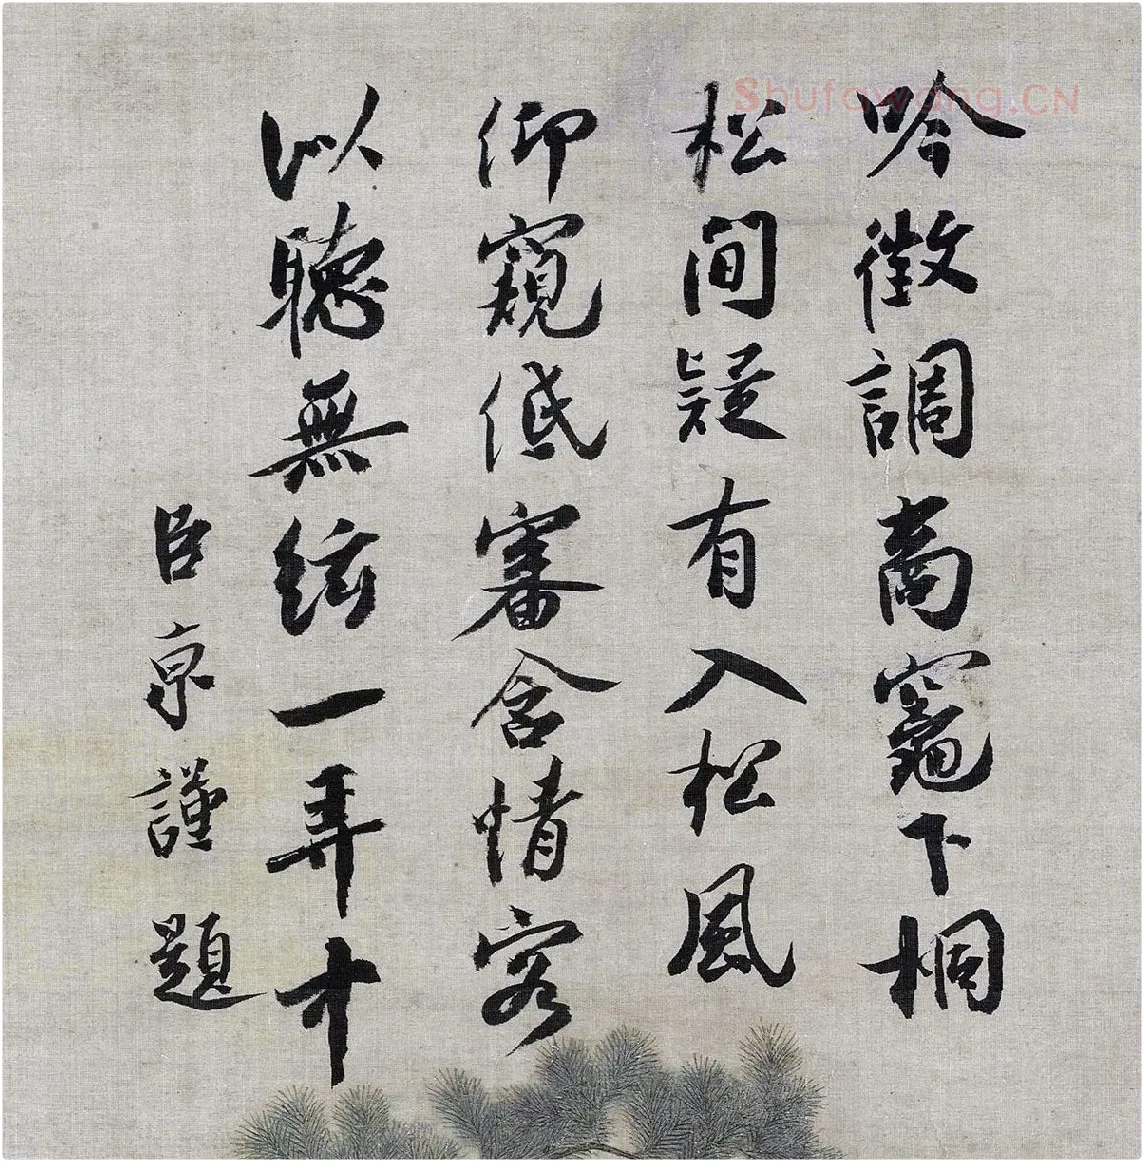 吟徵調商竈下桐
松間疑有入松風
仰窺低審含情客
以聽無絃一弄中
臣京謹題
Shufawang.CN